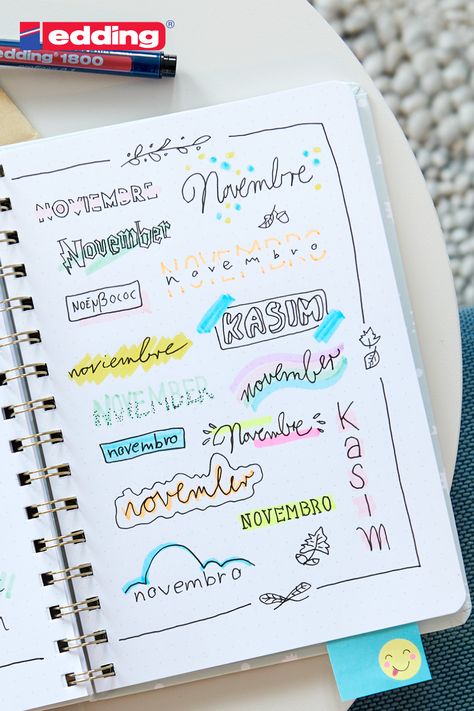 edding
edding 1800
NOVIEMBRE
Novembre
November
NOVEMBRO
novembro
KASIM
noviembre
november
NOVEMBER
novembro
Novembre
Kasım
november
NOVEMBRO
novembro